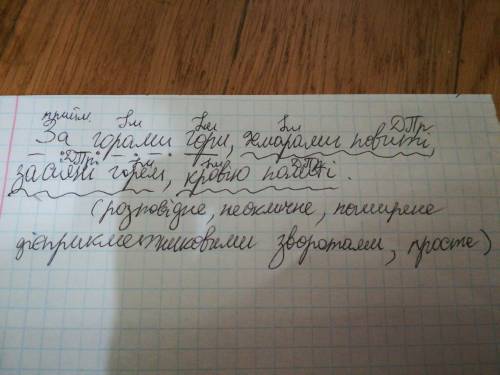 прийм. Ім Ім Ім ДПр.
За горами гори, хмарами повиті,
ДПр. Ім Ім ДПр.
засіяні горем, кровію политі.
(розповідне, неокличне, поширене
дієприкметниковими зворотами, просте)